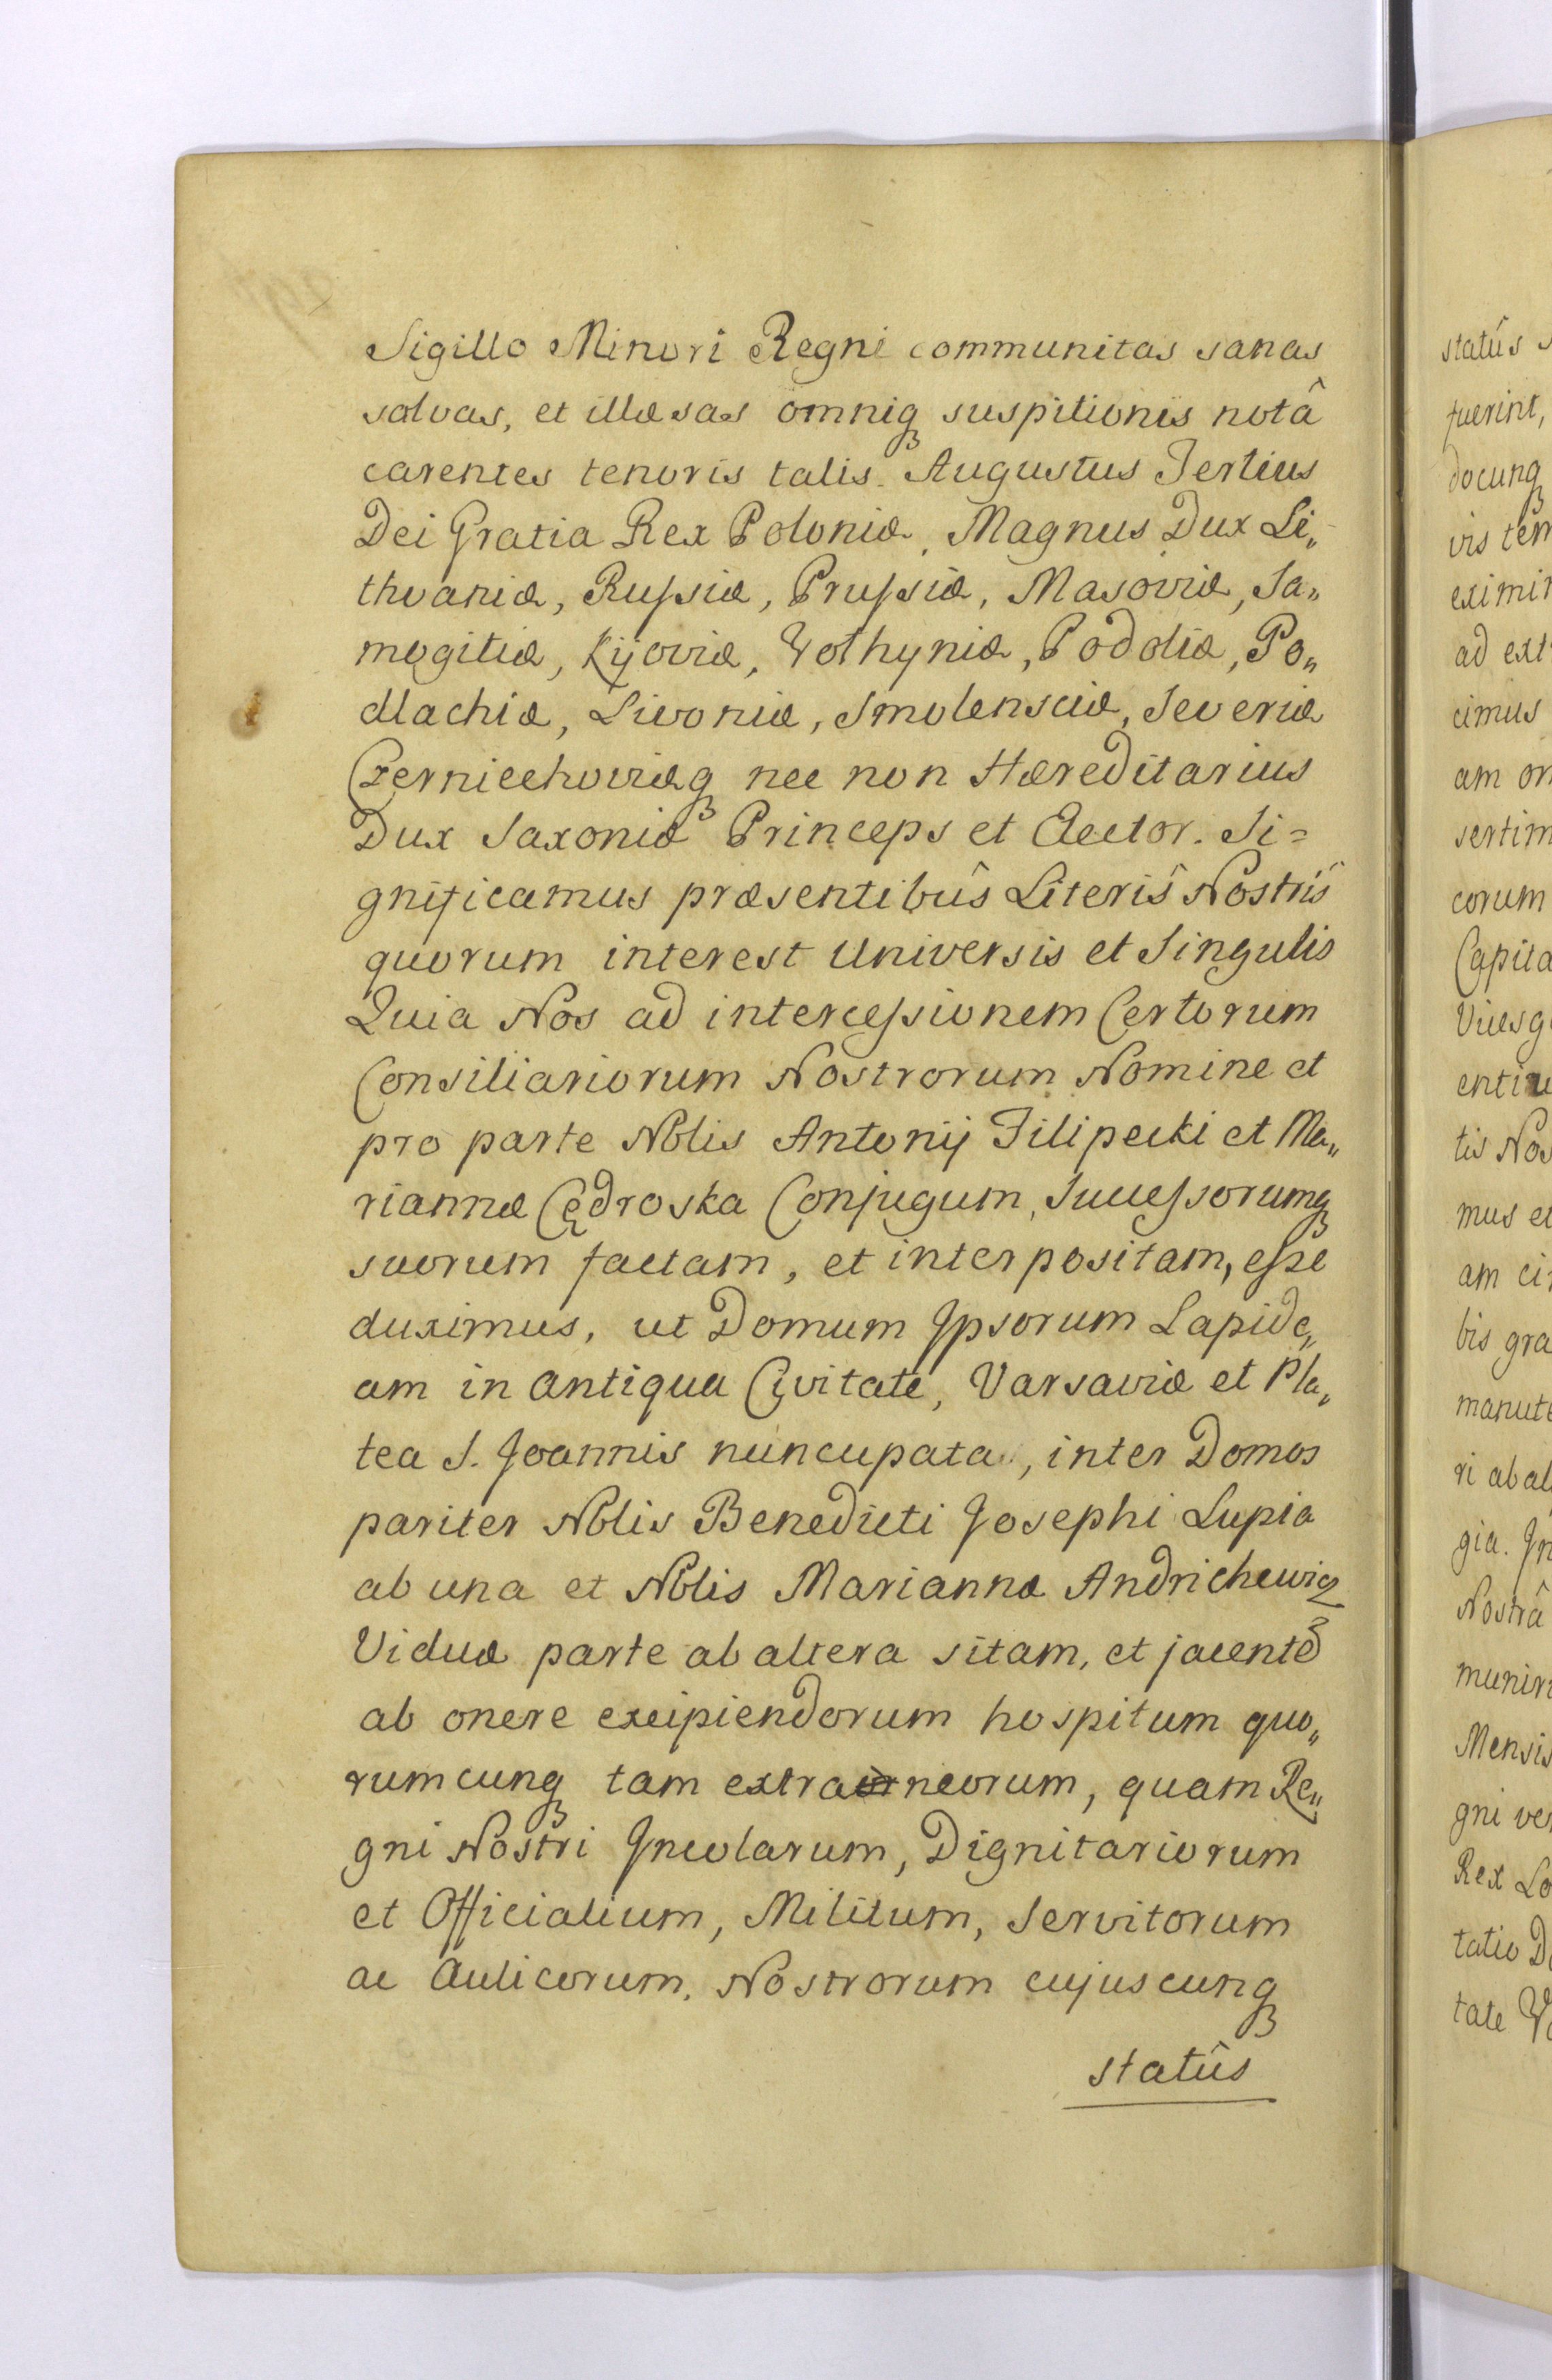 Sigillo Minori Regni communitas sanas
salvas, et illæsas omniq́ suspitionis notâ
carentes tenoris talis. Augustus Tertius
Dei Gratia Rex Poloniæ, Magnus Dux Li„
thvaniæ, Russiæ, Prussiæ, Masoviæ, Sa„
mogitiæ, Kijoviæ, Volhyniæ, Podoliæ, Po„
dlachiæ, Livoniæ, Smolensciæ, Severiæ
Czerniechoviæq nec non Hæreditarius
Dux Saxoniæ Princeps et Elector. Si=
gnificamus præsentibûs Literîs Nostrîs
quorum interest Universis et Singulis
Quia Nos ad intercessionem Certorum
Consiliariorum Nostrorum Nomine et
pro parte Nblis Antonij Filipecki et Ma„
riannæ Cędroska Conjugum, Successorumq
suorum factam, et interpositam, esse
duximus, ut Domum Ipsorum Lapide„
am in antiqua Civitate, Varsaviæ et Pla„
tea S. Joannis nuncupata, inter Domos
pariter Nblis Benedicti Josephi Lupia
ab una et Nblis Mariannæ Andrichewicz
Viduæ parte ab altera sitam, et jacentē
ab onere excipiendorum hospitum quo„
rumcunq tam extraneorum, quam Re„
gni Nostri Incolarum, Dignitariorum
et Officialium, Militum, Servitorum
ac Aulicorum, Nostrorum cujuscunq
statûs
statûs
fuerint,
docunq
vis tem
eximi
ad ext
cimus
am on
sertim
corum
Capita
tis Nos
mus et
am ci
bis gra
manute
ri abal
gia. In
Nostrâ
muniri
Mensis
gni ve
Rex Lo
tatio D
tate V